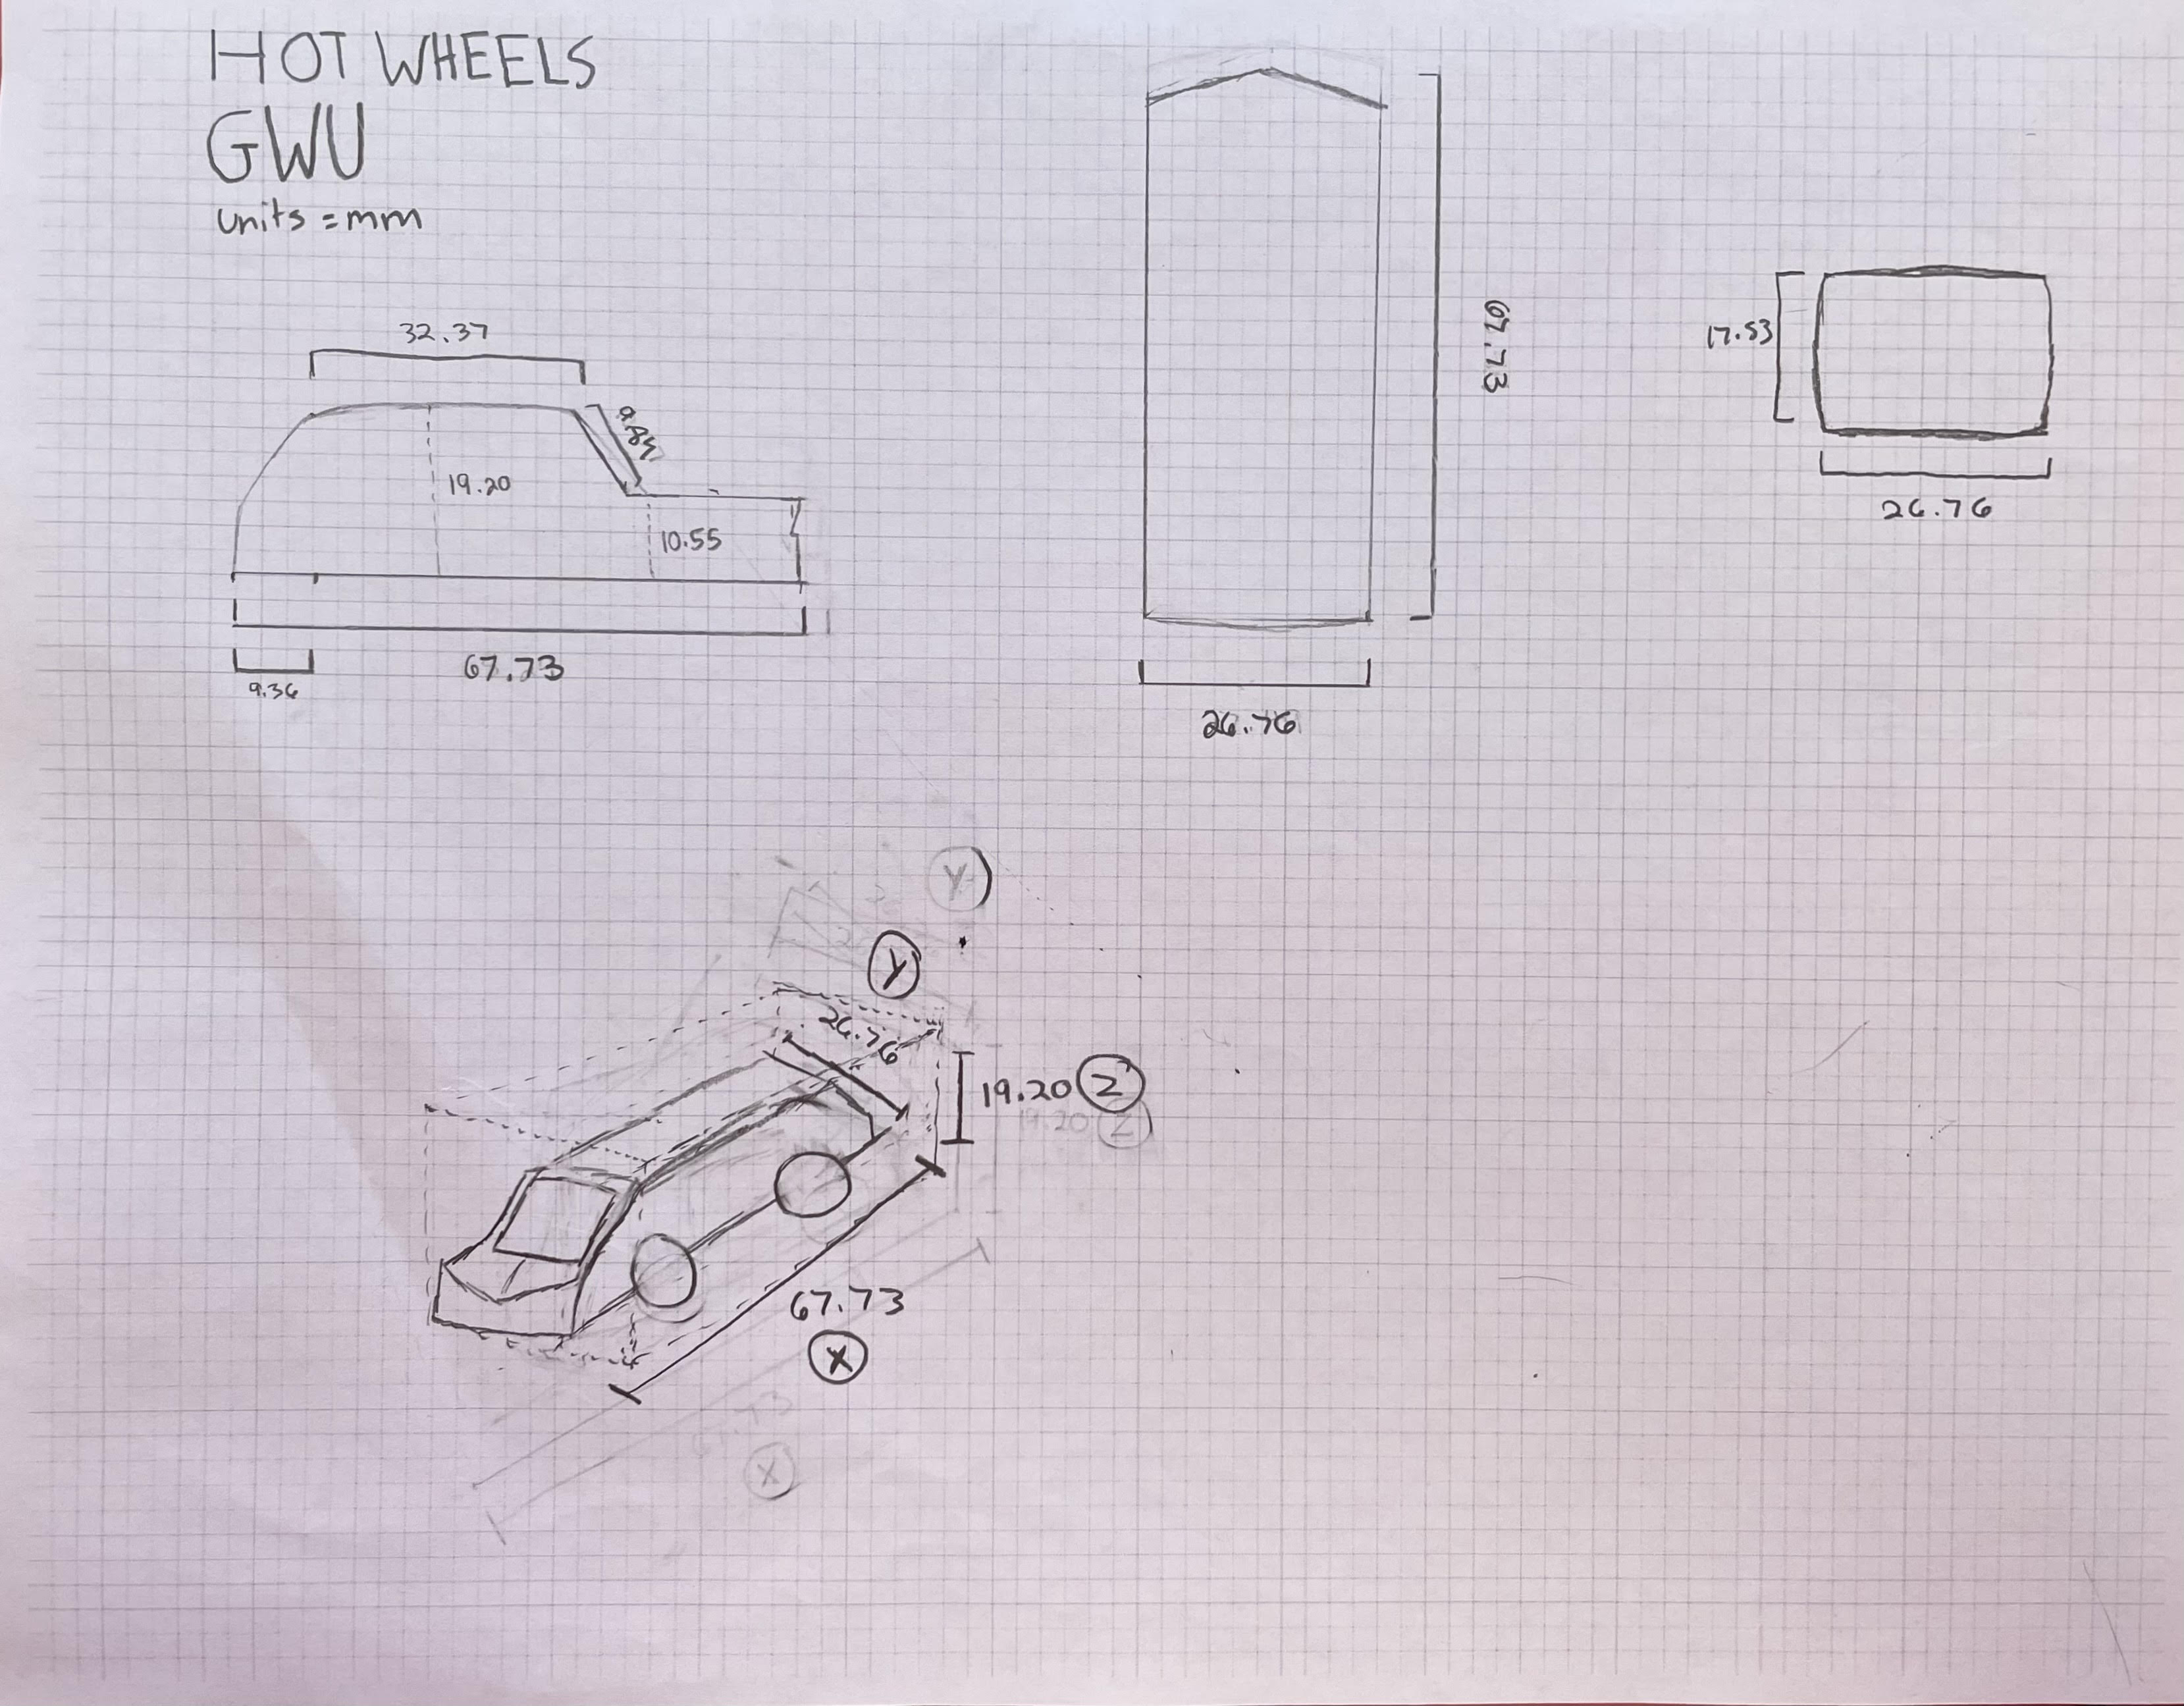 HOT WHEELS
GWU
units = mm
32.37
19.20
10.55
67.73
9.36
67.73
26.76
17.53
26.76
Y
Y
26.76
19.20 Z
19.20 Z
67.73
X
X